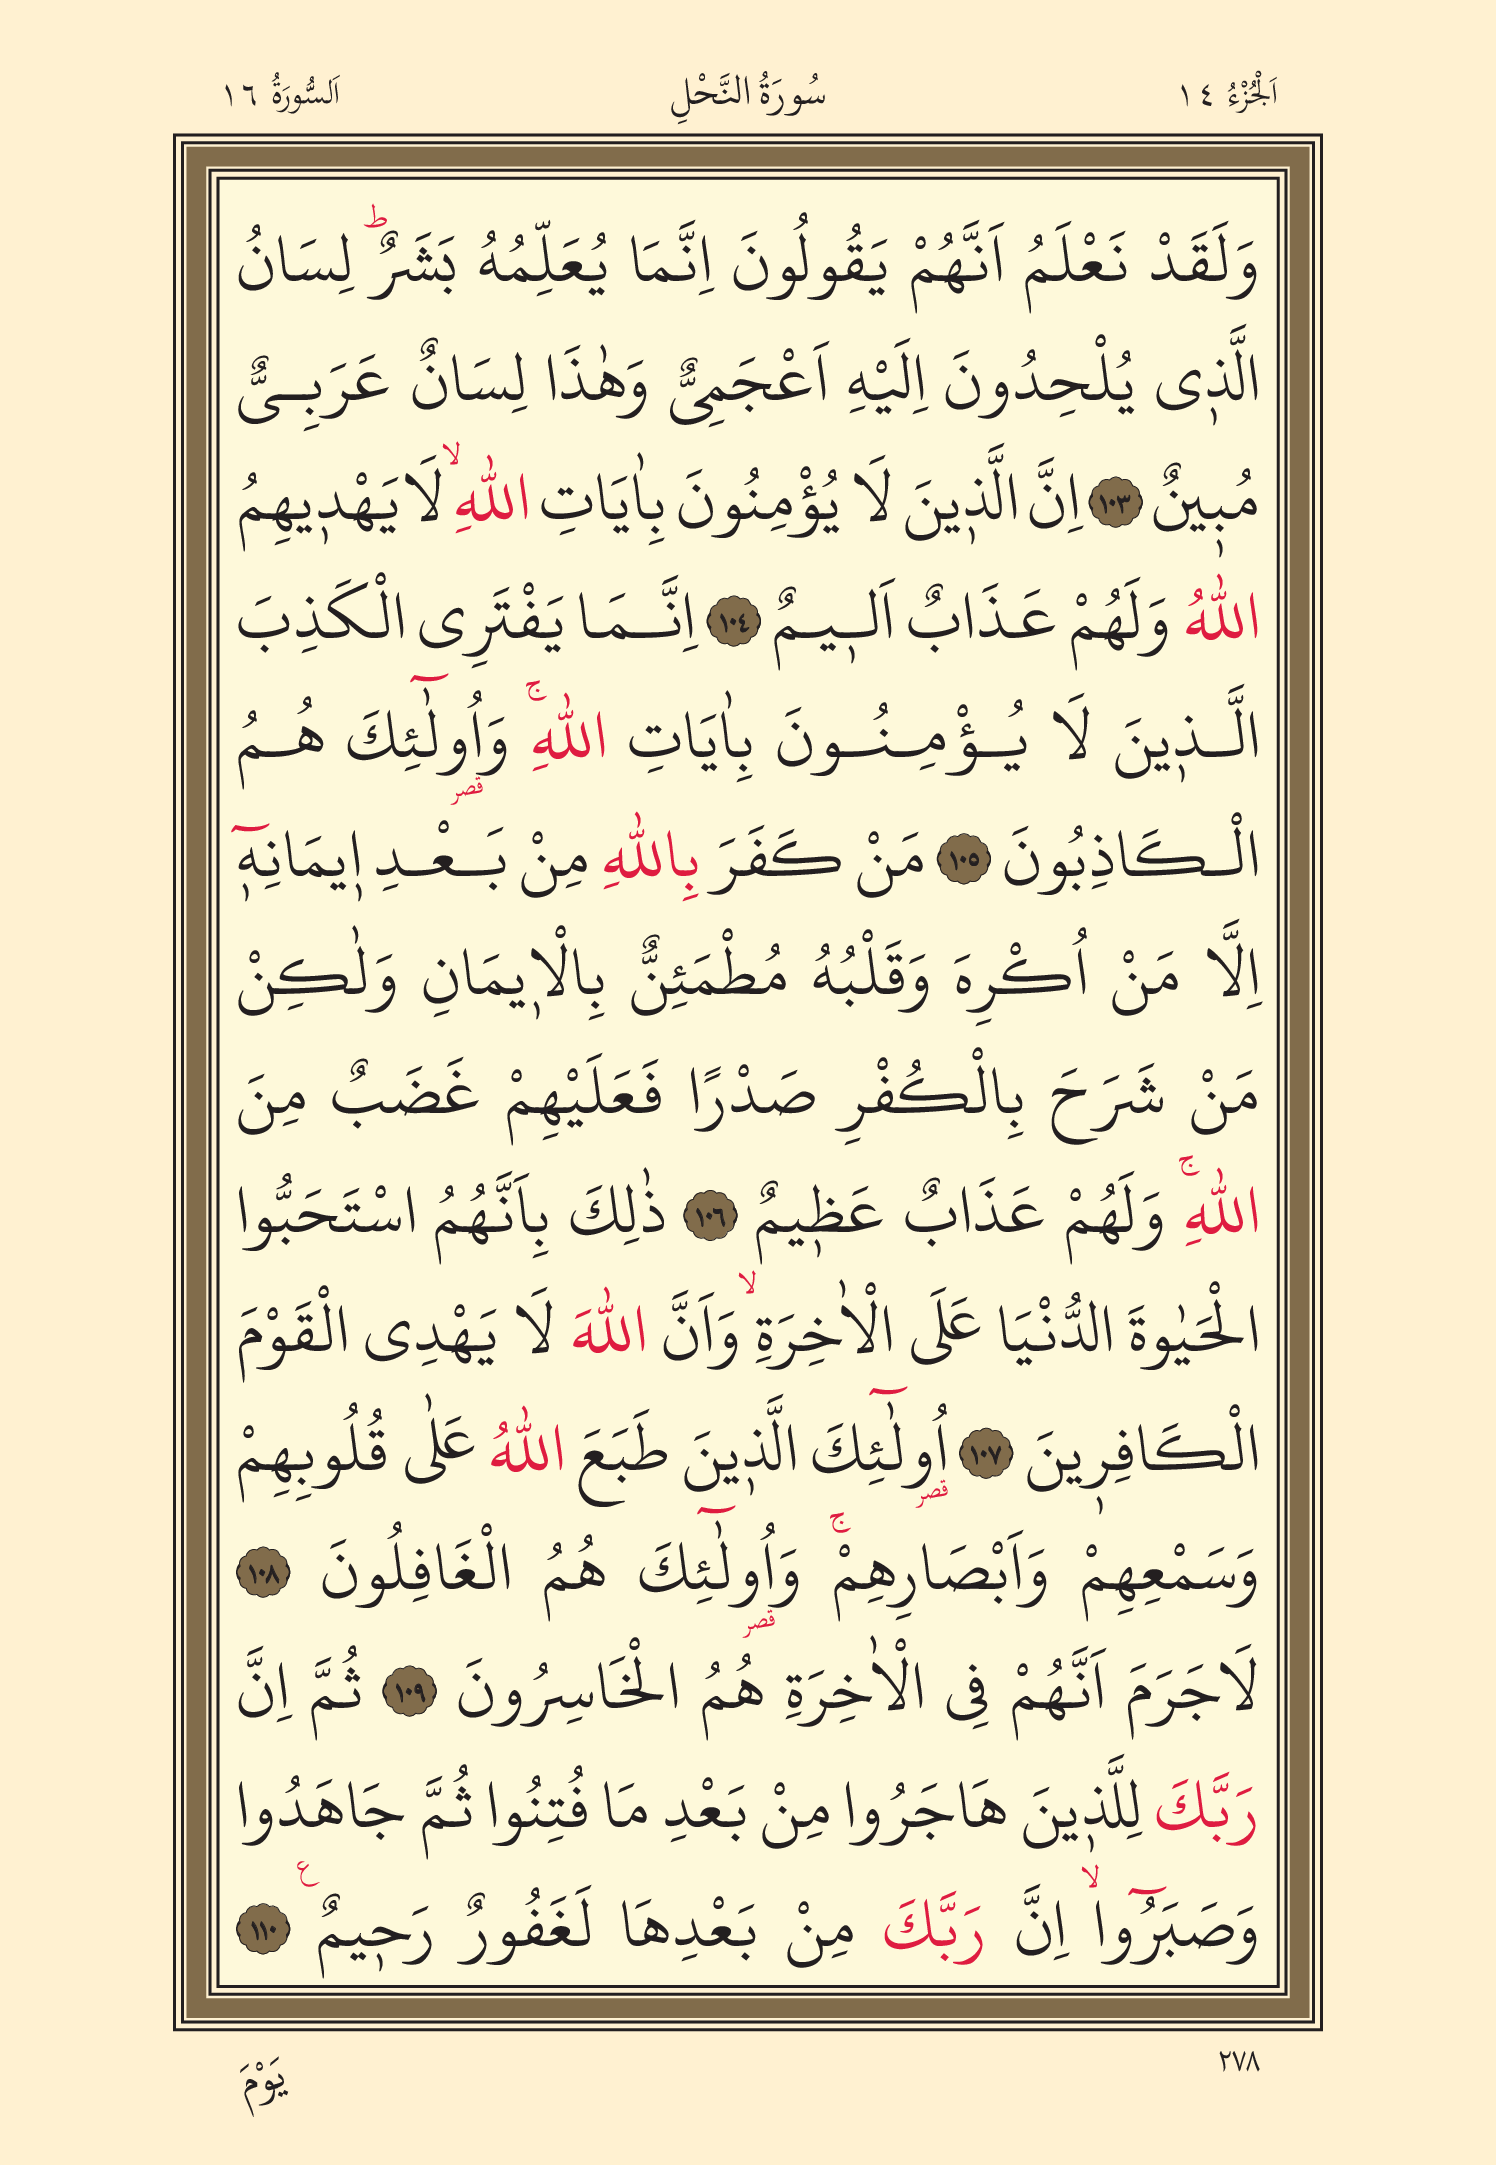 اَلْجُزْءُ ١٤ سُورَةُ النَّحْلِ اَلسُّورَةُ ١٦
وَلَقَدْ نَعْلَمُ اَنَّهُمْ يَقُولُونَ اِنَّمَا يُعَلِّمُهُ بَشَرٌۜ لِسَانُ
الَّذ۪ى يُلْحِدُونَ اِلَيْهِ اَعْجَمِىٌّ وَهٰذَا لِسَانٌ عَرَبِىٌّ
مُب۪ينٌ ﴿١٠٣﴾ اِنَّ الَّذ۪ينَ لَا يُؤْمِنُونَ بِاٰيَاتِ اللّٰهِۙ لَا يَهْد۪يهِمُ
اللّٰهُ وَلَهُمْ عَذَابٌ اَل۪يمٌ ﴿١٠٤﴾ اِنَّمَا يَفْتَرِى الْكَذِبَ
الَّذ۪ينَ لَا يُؤْمِنُونَ بِاٰيَاتِ اللّٰهِۚ وَاُو۬لٰٓئِكَ هُمُ
الْكَاذِبُونَ ﴿١٠٥﴾ مَنْ كَفَرَ بِاللّٰهِ مِنْ بَعْدِ ا۪يمَانِه۪ٓ
اِلَّا مَنْ اُكْرِهَ وَقَلْبُهُ مُطْمَئِنٌّ بِالْا۪يمَانِ وَلٰكِنْ
مَنْ شَرَحَ بِالْكُفْرِ صَدْرًا فَعَلَيْهِمْ غَضَبٌ مِنَ
اللّٰهِۚ وَلَهُمْ عَذَابٌ عَظ۪يمٌ ﴿١٠٦﴾ ذٰلِكَ بِاَنَّهُمُ اسْتَحَبُّوا
الْحَيٰوةَ الدُّنْيَا عَلَى الْاٰخِرَةِۙ وَاَنَّ اللّٰهَ لَا يَهْدِى الْقَوْمَ
الْكَافِر۪ينَ ﴿١٠٧﴾ اُو۬لٰٓئِكَ الَّذ۪ينَ طَبَعَ اللّٰهُ عَلٰى قُلُوبِهِمْ
وَسَمْعِهِمْ وَاَبْصَارِهِمْۚ وَاُو۬لٰٓئِكَ هُمُ الْغَافِلُونَ ﴿١٠٨﴾
لَاجَرَمَ اَنَّهُمْ فِى الْاٰخِرَةِ هُمُ الْخَاسِرُونَ ﴿١٠٩﴾ ثُمَّ اِنَّ
رَبَّكَ لِلَّذ۪ينَ هَاجَرُوا مِنْ بَعْدِ مَا فُتِنُوا ثُمَّ جَاهَدُوا
وَصَبَرُٓواۙ اِنَّ رَبَّكَ مِنْ بَعْدِهَا لَغَفُورٌ رَح۪يمٌ۟ ﴿١١٠﴾
٢٧٨ يَوْمَ